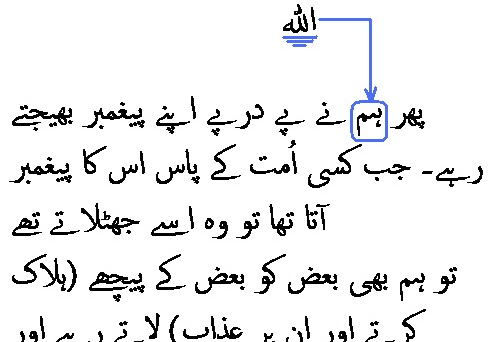 الله
پھر ہم نے پے درپے اپنے پیغمبر بھیجتے
رہے۔ جب کسی اُمت کے پاس اس کا پیغمبر
آتا تھا تو وہ اسے جھٹلاتے تھے
تو ہم بھی بعض کو بعض کے پیچھے (ہلاک
کرتے اور ان پر عذاب) لاتے رہے اور